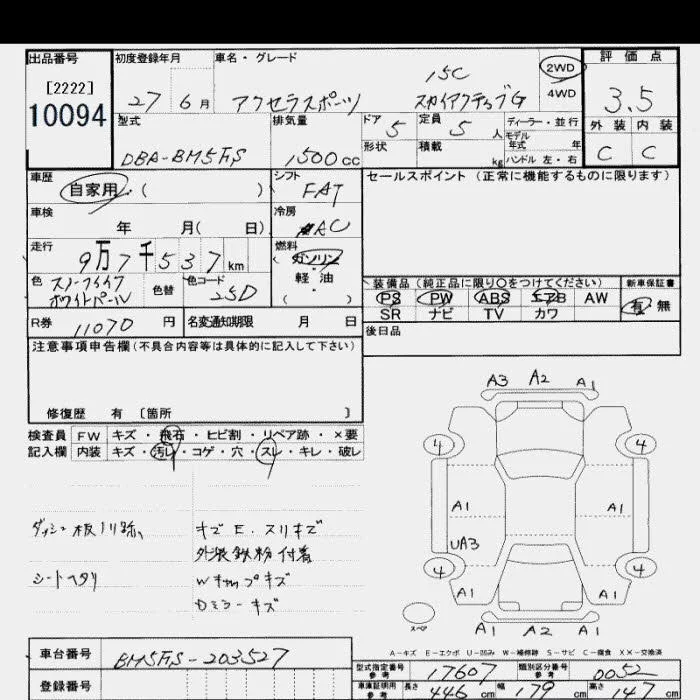 出品番号 初度登録年月 車名・グレード 評価点
[2222]
10094
27 6月 アクセラスポーツ 15C
スカイアクティブG
2WD
4WD
3.5
外装 内装
C C
型式 排気量 ドア 定員 ディーラー・並行
DBA-BM5FS 1500cc 5 5人 モデル年式 年
形状 積載 kg ハンドル 左・右
車歴 シフト セールスポイント (正常に機能するものに限ります)
自家用 ( ) FAT
車検 冷房
年 月( 日) AC
走行 燃料
9万7千537km ガソリン
軽・油
( )
色 色替 色コード
スノーフレイク
ホワイトパール 25D
装備品 (純正品に限り○をつけてください) 新車保証書
PS PW ABS エアB AW 有・無
SR ナビ TV カワ
R券 11070円 名変通知期限 月 日
後日品
注意事項申告欄 (不具合内容等は具体的に記入して下さい)
修復歴 有 〔箇所 〕
検査員 FW キズ・飛石・ヒビ割・リペア跡・×要
記入欄 内装 キズ・汚レ・コゲ・穴・スレ・キレ・破レ
ダッシュ板ノリ跡、
シートヘタリ
キズE、スリキズ
外装鉄粉付着
Wキャップキズ
Dミラーキズ
A3 A2 A1
4 4
A1 A1
UA3
4 4
A1 A1
スペア
A1 A2 A1
A-キズ E-エクボ U-凹み W-補修跡 S-サビ C-腐食 XX-交換済
車台番号 BM5FS-203527
登録番号
型式指定番号 参考 17607 類別区分番号 参考 0052
車庫証明用 参考 長さ 446cm 幅 179cm 高さ 147cm